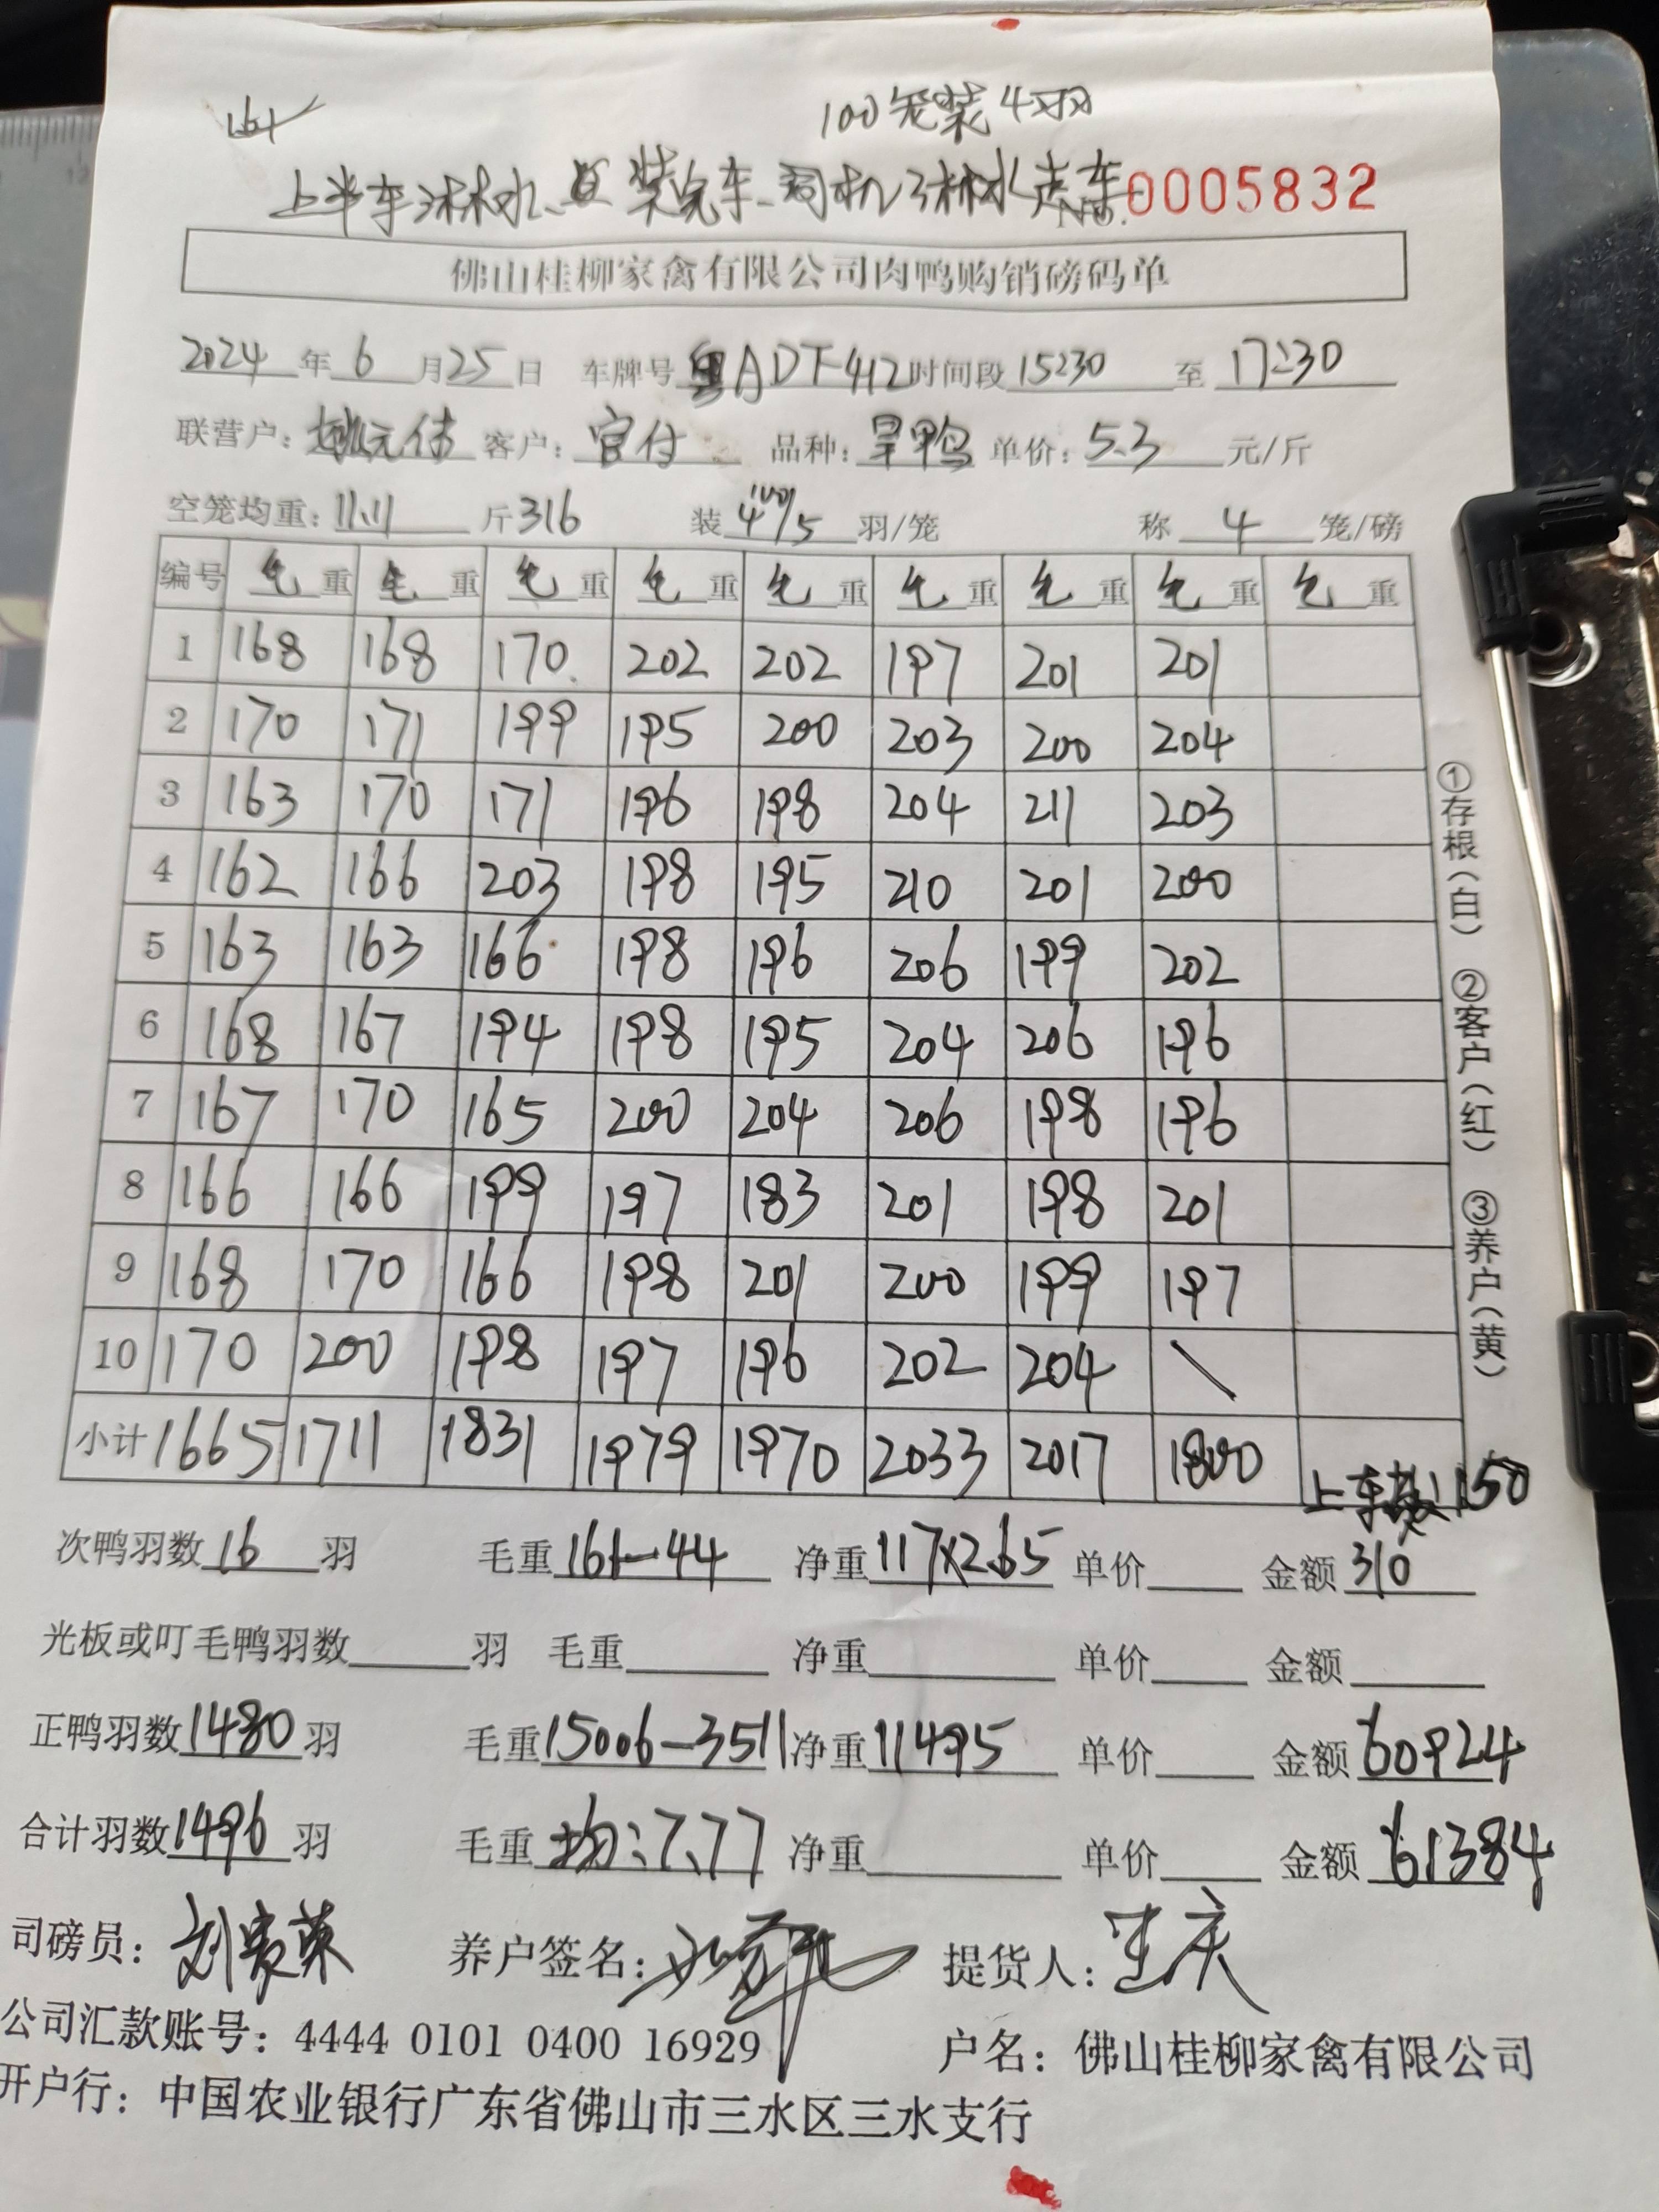 161
100笼装4羽
上半车淋水、且装完车、司机淋水走车 No. 0005832
佛山桂柳家禽有限公司肉鸭购销磅码单
2024年6月25日 车牌号粤ADT412时间段15:30至17:30
联营户: 客户:官付 品种:旱鸭 单价:5.3元/斤
空笼均重:11.11斤316 装4/5羽/笼 称4笼/磅
编号 毛重 毛重 毛重 毛重 毛重 毛重 毛重 毛重 毛重
1 168 168 170 202 202 197 201 201
2 170 171 199 195 200 203 200 204
3 163 170 171 196 198 204 211 203
4 162 166 203 198 195 210 201 200
5 163 163 166 198 196 206 199 202
6 168 167 194 198 195 204 206 196
7 167 170 165 200 204 206 198 196
8 166 166 199 197 183 201 198 201
9 168 170 166 198 201 200 199 197
10 170 200 198 197 196 202 204 \
小计 1665 1711 1831 1979 1970 2033 2017 1800
上车 150
次鸭羽数16羽 毛重161-44 净重117×2.65 单价 金额310
光板或叮毛鸭羽数 羽 毛重 净重 单价 金额
正鸭羽数1480羽 毛重15006-3511 净重11495 单价 金额60924
合计羽数1496羽 毛重均:7.77 净重 单价 金额61384
司磅员: 养户签名: 提货人:
公司汇款账号:4444 0101 0400 16929 户名:佛山桂柳家禽有限公司
开户行:中国农业银行广东省佛山市三水区三水支行
①存根(白) ②客户(红) ③养户(黄)